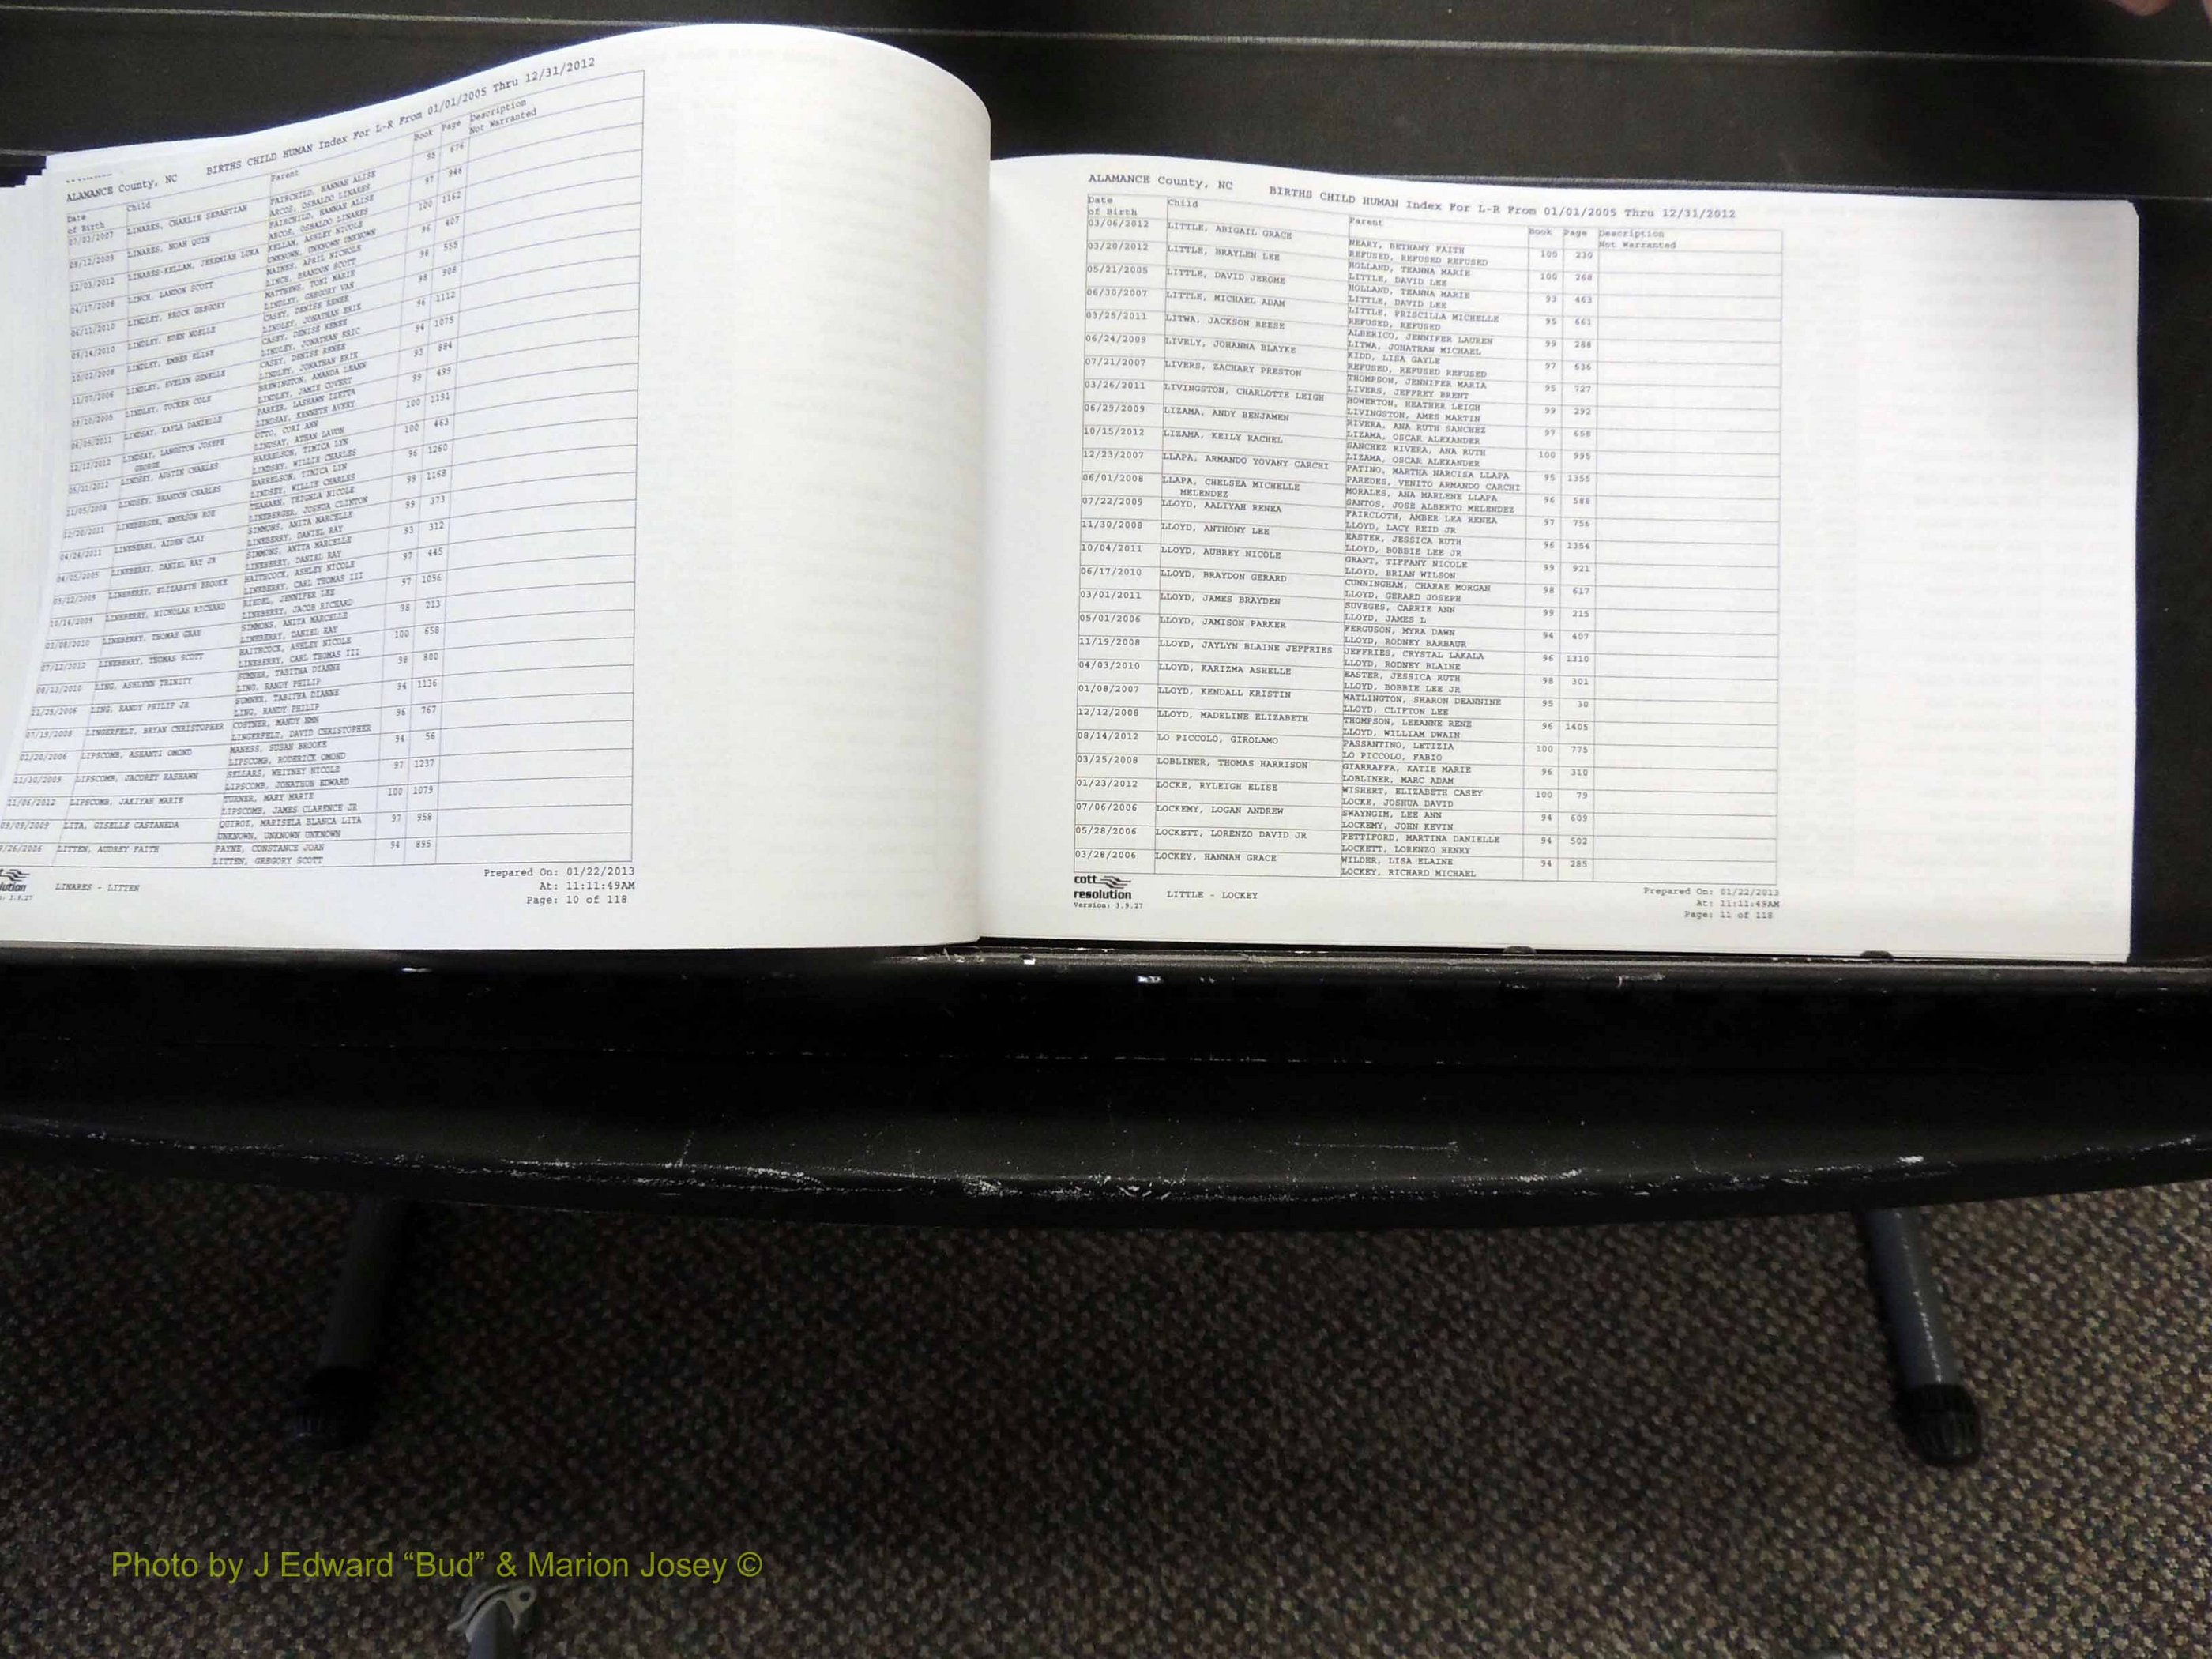 ALAMANCE County, NC BIRTHS CHILD HUMAN Index For L-R From 01/01/2005 Thru 12/31/2012
Date of Birth Child Parent Book Page Description Not Warranted
07/23/2007 LINARES, CHARLIE SEBASTIAN FAIRCHILD, HANNAH ALISE 95 676
ARCOS, OSBALDO LINARES
09/12/2009 LINARES, NOAH QUIN FAIRCHILD, HANNAH ALISE 97 946
ARCOS, OSBALDO LINARES
12/03/2012 LINARES-KELLAM, JEREMIAH LUKA KELLAM, ASHLEY NICOLE 100 1162
UNKNOWN, UNKNOWN UNKNOWN
04/17/2008 LINCH, LANDON SCOTT MAINES, APRIL NICHOLE 96 407
LINCH, BRANDON SCOTT
06/11/2010 LINDLEY, BROCK GREGORY MATTHEWS, TORI MARIE 98 555
LINDLEY, GREGORY VAN
09/14/2010 LINDLEY, EDEN NOELLE CASEY, DENISE RENEE 98 908
LINDLEY, JONATHAN ERIK
10/02/2008 LINDLEY, EMBER ELISE CASEY, DENISE RENEE 96 1112
LINDLEY, JONATHAN ERIC
11/07/2006 LINDLEY, EVELYN GENELLE CASEY, DENISE RENEE 94 1075
LINDLEY, JONATHAN ERIK
09/10/2005 LINDLEY, TUCKER COLE BREWINGTON, AMANDA LEANN 93 884
LINDLEY, JAMIE COVERT
06/05/2011 LINDSAY, KAYLA DANIELLE PARKER, LASHAWN IZETTA 99 499
LINDSAY, KENNETH AVERY
12/12/2012 LINDSAY, LANGSTON JOSEPH GEORGE OTTO, CORI ANN 100 1191
LINDSAY, ATHAN LAVON
05/21/2012 LINDSEY, AUSTIN CHARLES HARRELSON, TIMICA LYN 100 463
LINDSEY, WILLIE CHARLES
11/05/2008 LINDSEY, BRANDON CHARLES HARRELSON, TIMICA LYN 96 1260
LINDSEY, WILLIE CHARLES
12/20/2011 LINEBERGER, EMERSON ROE TEAHARN, TEIGHLA NICOLE 99 1168
LINEBERGER, JOSHUA CLINTON
04/24/2011 LINEBERRY, AIDEN CLAY SIMMONS, ANITA MARCELLE 99 373
LINEBERRY, DANIEL RAY
04/05/2005 LINEBERRY, DANIEL RAY JR SIMMONS, ANITA MARCELLE 93 312
LINEBERRY, DANIEL RAY
05/12/2009 LINEBERRY, ELIZABETH BROOKE HAITHCOCK, ASHLEY NICOLE 97 445
LINEBERRY, CARL THOMAS III
10/14/2009 LINEBERRY, NICHOLAS RICHARD RIEDEL, JENNIFER LEE 97 1056
LINEBERRY, JACOB RICHARD
03/08/2010 LINEBERRY, THOMAS GRAY SIMMONS, ANITA MARCELLE 98 213
LINEBERRY, DANIEL RAY
07/12/2012 LINEBERRY, THOMAS SCOTT HAITHCOCK, ASHLEY NICOLE 100 658
LINEBERRY, CARL THOMAS III
08/13/2010 LING, ASHLYNN TRINITY SUMNER, TABITHA DIANNE 98 800
LING, RANDY PHILIP
11/25/2006 LING, RANDY PHILIP JR SUMNER, TABITHA DIANNE 94 1136
LING, RANDY PHILIP
07/19/2008 LINGERFELT, BRYAN CHRISTOPHER COSTNER, MANDY NMN 96 767
LINGERFELT, DAVID CHRISTOPHER
01/20/2006 LIPSCOMB, ASHANTI OMOND MANESS, SUSAN BROOKE 94 56
LIPSCOMB, RODERICK OMOND
11/30/2009 LIPSCOMB, JACOREY RASHAWN SELLARS, WHITNEY NICOLE 97 1237
LIPSCOMB, JONATHON EDWARD
11/06/2012 LIPSCOMB, JAKIYAH MARIE TURNER, MARY MARIE 100 1079
LIPSCOMB, JAMES CLARENCE JR
09/09/2009 LITA, GISELLE CASTANEDA QUIROZ, MARISELA BLANCA LITA 97 958
UNKNOWN, UNKNOWN UNKNOWN
/26/2006 LITTEN, AUDREY FAITH PAYNE, CONSTANCE JOAN 94 895
LITTEN, GREGORY SCOTT
lution LINARES - LITTEN
: 3.9.27
Prepared On: 01/22/2013
At: 11:11:49AM
Page: 10 of 118
ALAMANCE County, NC BIRTHS CHILD HUMAN Index For L-R From 01/01/2005 Thru 12/31/2012
Date of Birth Child Parent Book Page Description Not Warranted
03/06/2012 LITTLE, ABIGAIL GRACE NEARY, BETHANY FAITH 100 230
REFUSED, REFUSED REFUSED
03/20/2012 LITTLE, BRAYLEN LEE HOLLAND, TEANNA MARIE 100 268
LITTLE, DAVID LEE
05/21/2005 LITTLE, DAVID JEROME HOLLAND, TEANNA MARIE 93 463
LITTLE, DAVID LEE
06/30/2007 LITTLE, MICHAEL ADAM LITTLE, PRISCILLA MICHELLE 95 661
REFUSED, REFUSED
03/25/2011 LITWA, JACKSON REESE ALBERICO, JENNIFER LAUREN 99 288
LITWA, JONATHAN MICHAEL
06/24/2009 LIVELY, JOHANNA BLAYKE KIDD, LISA GAYLE 97 636
REFUSED, REFUSED REFUSED
07/21/2007 LIVERS, ZACHARY PRESTON THOMPSON, JENNIFER MARIA 95 727
LIVERS, JEFFREY BRENT
03/26/2011 LIVINGSTON, CHARLOTTE LEIGH HOWERTON, HEATHER LEIGH 99 292
LIVINGSTON, AMES MARTIN
06/29/2009 LIZAMA, ANDY BENJAMEN RIVERA, ANA RUTH SANCHEZ 97 658
LIZAMA, OSCAR ALEXANDER
10/15/2012 LIZAMA, KEILY RACHEL SANCHEZ RIVERA, ANA RUTH 100 995
LIZAMA, OSCAR ALEXANDER
12/23/2007 LLAPA, ARMANDO YOVANY CARCHI PATINO, MARTHA NARCISA LLAPA 95 1355
PAREDES, VENITO ARMANDO CARCHI
06/01/2008 LLAPA, CHELSEA MICHELLE MELENDEZ MORALES, ANA MARLENE LLAPA 96 588
SANTOS, JOSE ALBERTO MELENDEZ
07/22/2009 LLOYD, AALIYAH RENEA FAIRCLOTH, AMBER LEA RENEA 97 756
LLOYD, LACY REID JR
11/30/2008 LLOYD, ANTHONY LEE EASTER, JESSICA RUTH 96 1354
LLOYD, BOBBIE LEE JR
10/04/2011 LLOYD, AUBREY NICOLE GRANT, TIFFANY NICOLE 99 921
LLOYD, BRIAN WILSON
06/17/2010 LLOYD, BRAYDON GERARD CUNNINGHAM, CHARAE MORGAN 98 617
LLOYD, GERARD JOSEPH
03/01/2011 LLOYD, JAMES BRAYDEN SUVEGES, CARRIE ANN 99 215
LLOYD, JAMES L
05/01/2006 LLOYD, JAMISON PARKER FERGUSON, MYRA DAWN 94 407
LLOYD, RODNEY BARBAUR
11/19/2008 LLOYD, JAYLYN BLAINE JEFFRIES JEFFRIES, CRYSTAL LAKALA 96 1310
LLOYD, RODNEY BLAINE
04/03/2010 LLOYD, KARIZMA ASHELLE EASTER, JESSICA RUTH 98 301
LLOYD, BOBBIE LEE JR
01/08/2007 LLOYD, KENDALL KRISTIN WATLINGTON, SHARON DEANNINE 95 30
LLOYD, CLIFTON LEE
12/12/2008 LLOYD, MADELINE ELIZABETH THOMPSON, LEEANNE RENE 96 1405
LLOYD, WILLIAM DWAIN
08/14/2012 LO PICCOLO, GIROLAMO PASSANTINO, LETIZIA 100 775
LO PICCOLO, FABIO
03/25/2008 LOBLINER, THOMAS HARRISON GIARRAFFA, KATIE MARIE 96 310
LOBLINER, MARC ADAM
01/23/2012 LOCKE, RYLEIGH ELISE WISHERT, ELIZABETH CASEY 100 79
LOCKE, JOSHUA DAVID
07/06/2006 LOCKEMY, LOGAN ANDREW SWAYNGIM, LEE ANN 94 609
LOCKEMY, JOHN KEVIN
05/28/2006 LOCKETT, LORENZO DAVID JR PETTIFORD, MARTINA DANIELLE 94 502
LOCKETT, LORENZO HENRY
03/28/2006 LOCKEY, HANNAH GRACE WILDER, LISA ELAINE 94 285
LOCKEY, RICHARD MICHAEL
cott
resolution LITTLE - LOCKEY
Version: 3.9.27
Prepared On: 01/22/2013
At: 11:11:49AM
Page: 11 of 118
Photo by J Edward “Bud” & Marion Josey ©